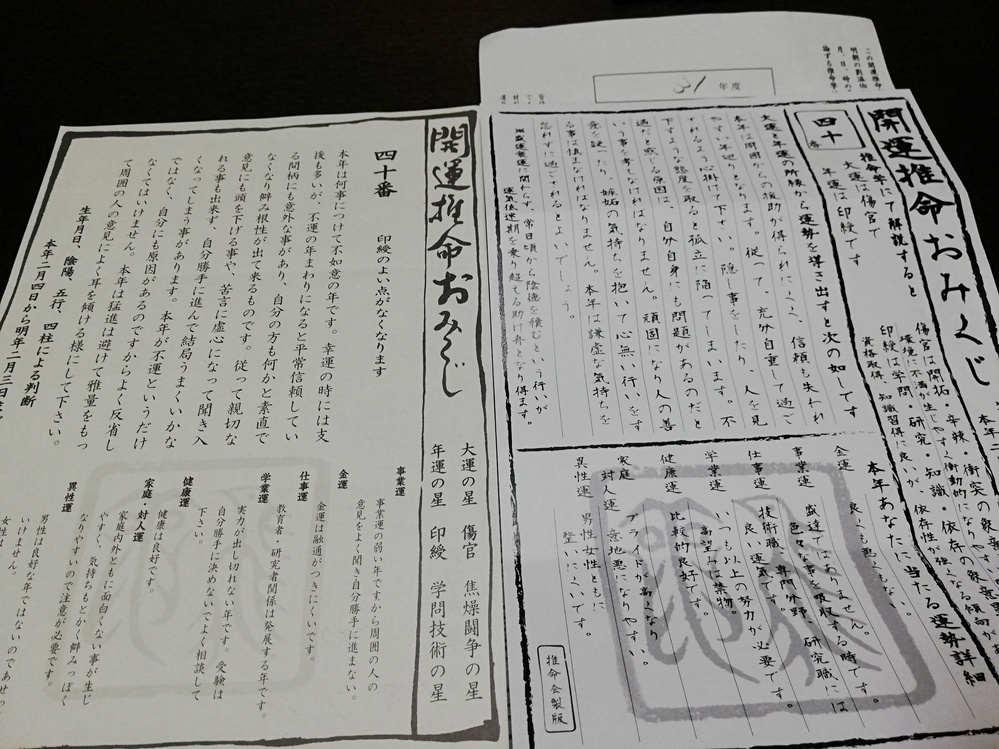 開運推命おみくじ
四十番
大運は傷官で
年運は印綬です
推命学にて解説すると
傷官は開拓・辛辣・衝突の
環境に不満が生じやすく衝動的になりやすい傾向が
印綬は学問・研究・知識・依存の
資格取得、知識習得に良いが、依存性が強くなる
大運と年運の所縁から運勢を導き出すと次の如しです
本年は周囲からの援助が得られにくく、信頼も失われ
やすい年廻りとなります。従って、充分自重して過ご
されるよう心掛けて下さい。隠し事をしたり、人を見
下すような態度を取ると孤立に陥ってしまいます。不
遇だと感じる原因は、自分自身にも問題があるのだと
いう事を考えなければなりません。頑固になり人の善
意を疑ったり、嫉妬の気持ちを抱いて心無い行いをす
る事は慎まなければなりません。本年は謙虚な気持ちを
忘れずに過ごされるとよいでしょう。
※盛運衰運に関わらず、常日頃から陰徳を積むという行いが
運気低迷期を乗り超える助け舟となり得ます。
本年あなたに当たる運勢詳細
金運 良くも悪くもない。
盛運ではありません。
事業運 色々な事を吸収する時です。
技術職、専門分野、研究職には
仕事運 良い運気です。
いつも以上の努力が必要です。
学業運 高望みは禁物。
健康運 比較的良好です。
プライドが高くなり
家庭 対人運 意地悪になりやすい。
異性運 男女性ともに
整正しにくいです。
推命会製版
31 年度
開運推命おみくじ
四十番 印綬のよい点がなくなります
本年は何事につけて不如意の年です。幸運の時には支
後も多いが、不運の年まわりになると平常信頼してい
る間柄にも意外な事があり、自分の方も何かと素直で
なくなり僻み根性が出て来るものです。従って親切な
意見にも頭を下げる事や、苦言に虚心になって聞き入
れる事も出来ず、自分勝手に進んで結局うまくいかな
くなってしまう事があります。本年が不運というだけ
ではなく、自分にも原因があるのですからよく反省し
なくてはいけません。本年は猛進は避けて雅量をもっ
て周囲の人の意見によく耳を傾ける様にして下さい。
生年月日、陰陽、五行、四柱による判断
本年二月四日から明年二月三日
大運の星 傷官 焦燥闘争の星
年運の星 印綬 学問技術の星
事業運
事業運の弱い年ですから周囲の人の
意見をよく聞き自分勝手に進まない。
金運
金運は融通がつきにくいです。
仕事運
教育者、研究者関係は発展する年です。
学業運
実力が出し切れない年です。受験は
自分勝手に決めないでよく相談して
下さい。
健康運
健康は良好です。
家庭 対人運
家庭内外ともに面白くない事が生じ
やすく、気持ちもとかく僻みっぽく
なりやすいので注意が必要です。
異性運
男性は良好な年ではないのであせっ
いけません。
女性は